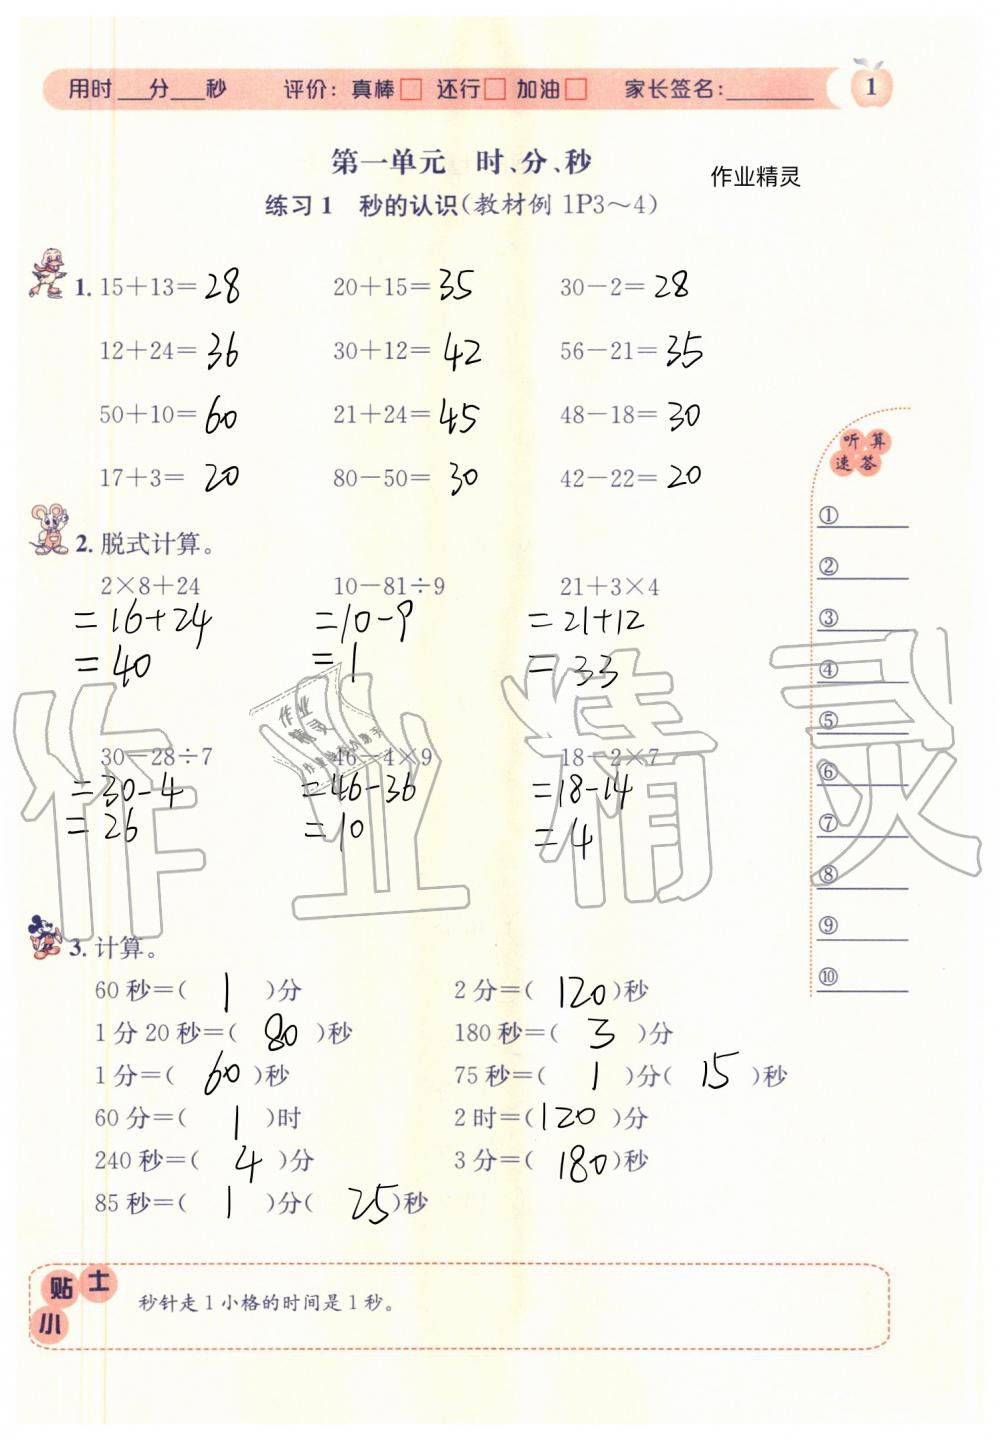 用时___分___秒 评价：真棒□ 还行□ 加油□ 家长签名：_______ 1
第一单元 时、分、秒
作业精灵
练习1 秒的认识（教材例1P3～4）
1. 15+13= 28 20+15= 35 30-2= 28
12+24= 36 30+12= 42 56-21= 35
50+10= 60 21+24= 45 48-18= 30
17+3= 20 80-50= 30 42-22= 20
2. 脱式计算。
2×8+24 10-81÷9 21+3×4
=16+24 =10-9 =21+12
=40 =1 =33
30-28÷7 46-4×9 18-2×7
=30-4 =46-36 =18-14
=26 =10 =4
3. 计算。
60秒=( 1 )分 2分=( 120 )秒
1分20秒=( 80 )秒 180秒=( 3 )分
1分=( 60 )秒 75秒=( 1 )分( 15 )秒
60分=( 1 )时 2时=( 120 )分
240秒=( 4 )分 3分=( 180 )秒
85秒=( 1 )分( 25 )秒
听算
速答
①
②
③
④
⑤
⑥
⑦
⑧
⑨
⑩
小贴士
秒针走1小格的时间是1秒。
作业精灵
作业
精灵